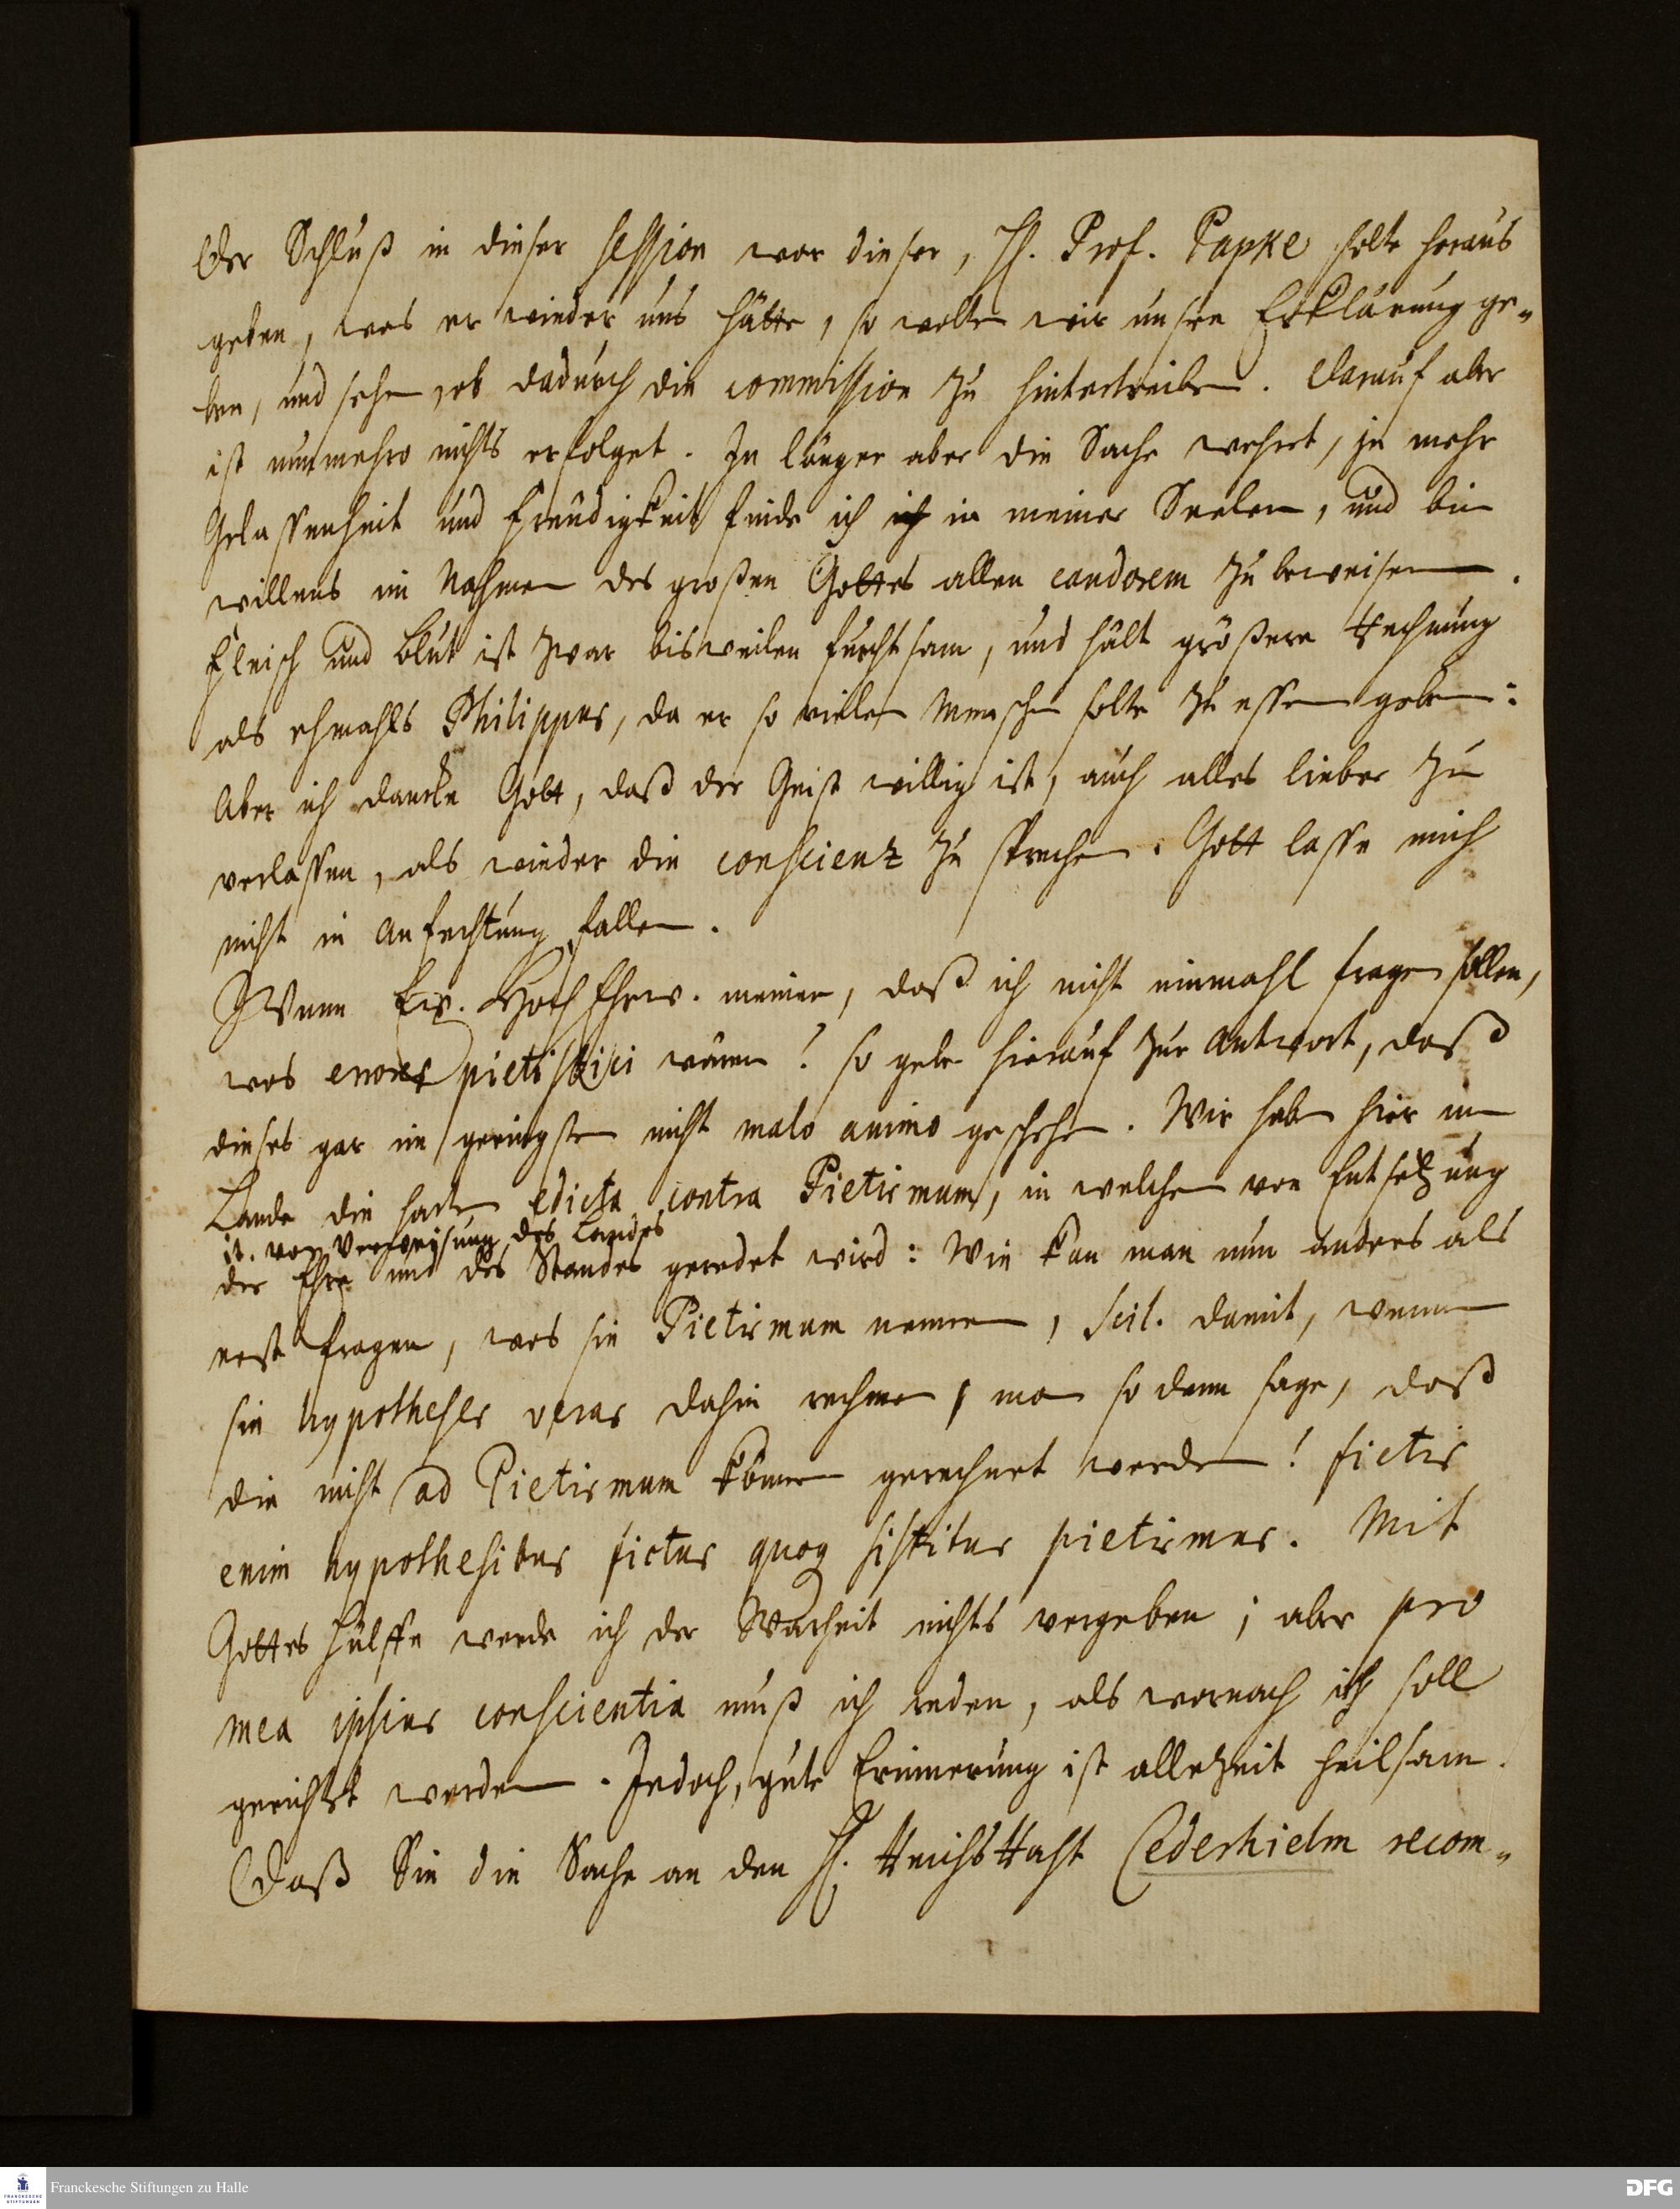 Der Schluß in dieser session war dieser, H. Prof. Papke solte heraus
geben, was er wieder uns hätte, so wolten wir unsre Erklärung ge-
ben, und sehen, ob dadurch die commission zu hintertreiben. Darauf aber
ist nunmehro nichts erfolget. Je länger aber die Sache wehret, je mehr
Gelassenheit und Freudigkeit finde ich ich in meiner Seelen, und bin
willens im Nahmen des großen Gottes allen candorem zu beweisen.
Fleisch und Blut ist zwar bisweilen furchtsam, und hält größere Rechnung
als ehmahls Philippus, da er so vielen Menschen solte zu essen geben:
Aber ich dancke Gott, daß der Geist willig ist, auch alles lieber zu
verlassen, als wieder die conscienz zu sprechen. Gott lasse mich
nicht in Anfechtung fallen.
Wenn Ew. HochEhrw. meinen, daß ich nicht einmahl fragen sollen,
was errores pietistici wären! so gebe hierauf zur Antwort, daß
dieses gar im geringsten nicht malo animo geschehen. Wir haben hier im
Lande die harten edicta contra Pietismum, in welchen von Entsetzung
it. von Verweisung des Landes
der Ehre und des Standes geredet wird: Wie kan man nun anders als
erst fragen, was sie Pietismum nennen, scil. damit, wenn
sie hypotheses veras dahin rechnen, man so denn sage, daß
die nicht ad Pietismum können gerechnet werden! fictis
enim hypothesibus fictus quoq sistitur pietismus. Mit
Gottes Hülffe werde ich der Warheit nichts vergeben; aber pro
mea ipsius conscientia muß ich reden, als wornach ich soll
gerichtet werden. Jedoch, gute Erinnerung ist allezeit heilsam.
Daß Sie die Sache an den H. ReichsRaht Cederhielm recom-
Franckesche Stiftungen zu Halle
FRANCKESCHE
STIFTUNGEN
DFG